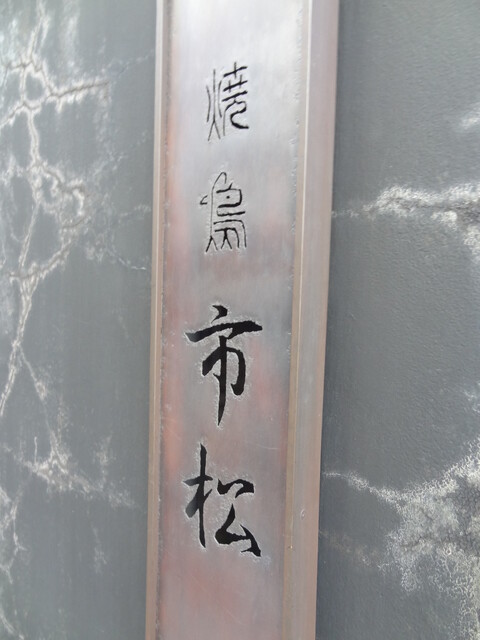 焼鳥市松